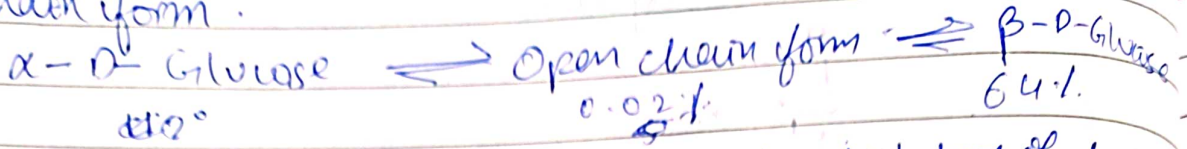 form.
α-D Glucose ⇌ Open chain form ⇌ β-D-Glucose
0.02% 64%
of